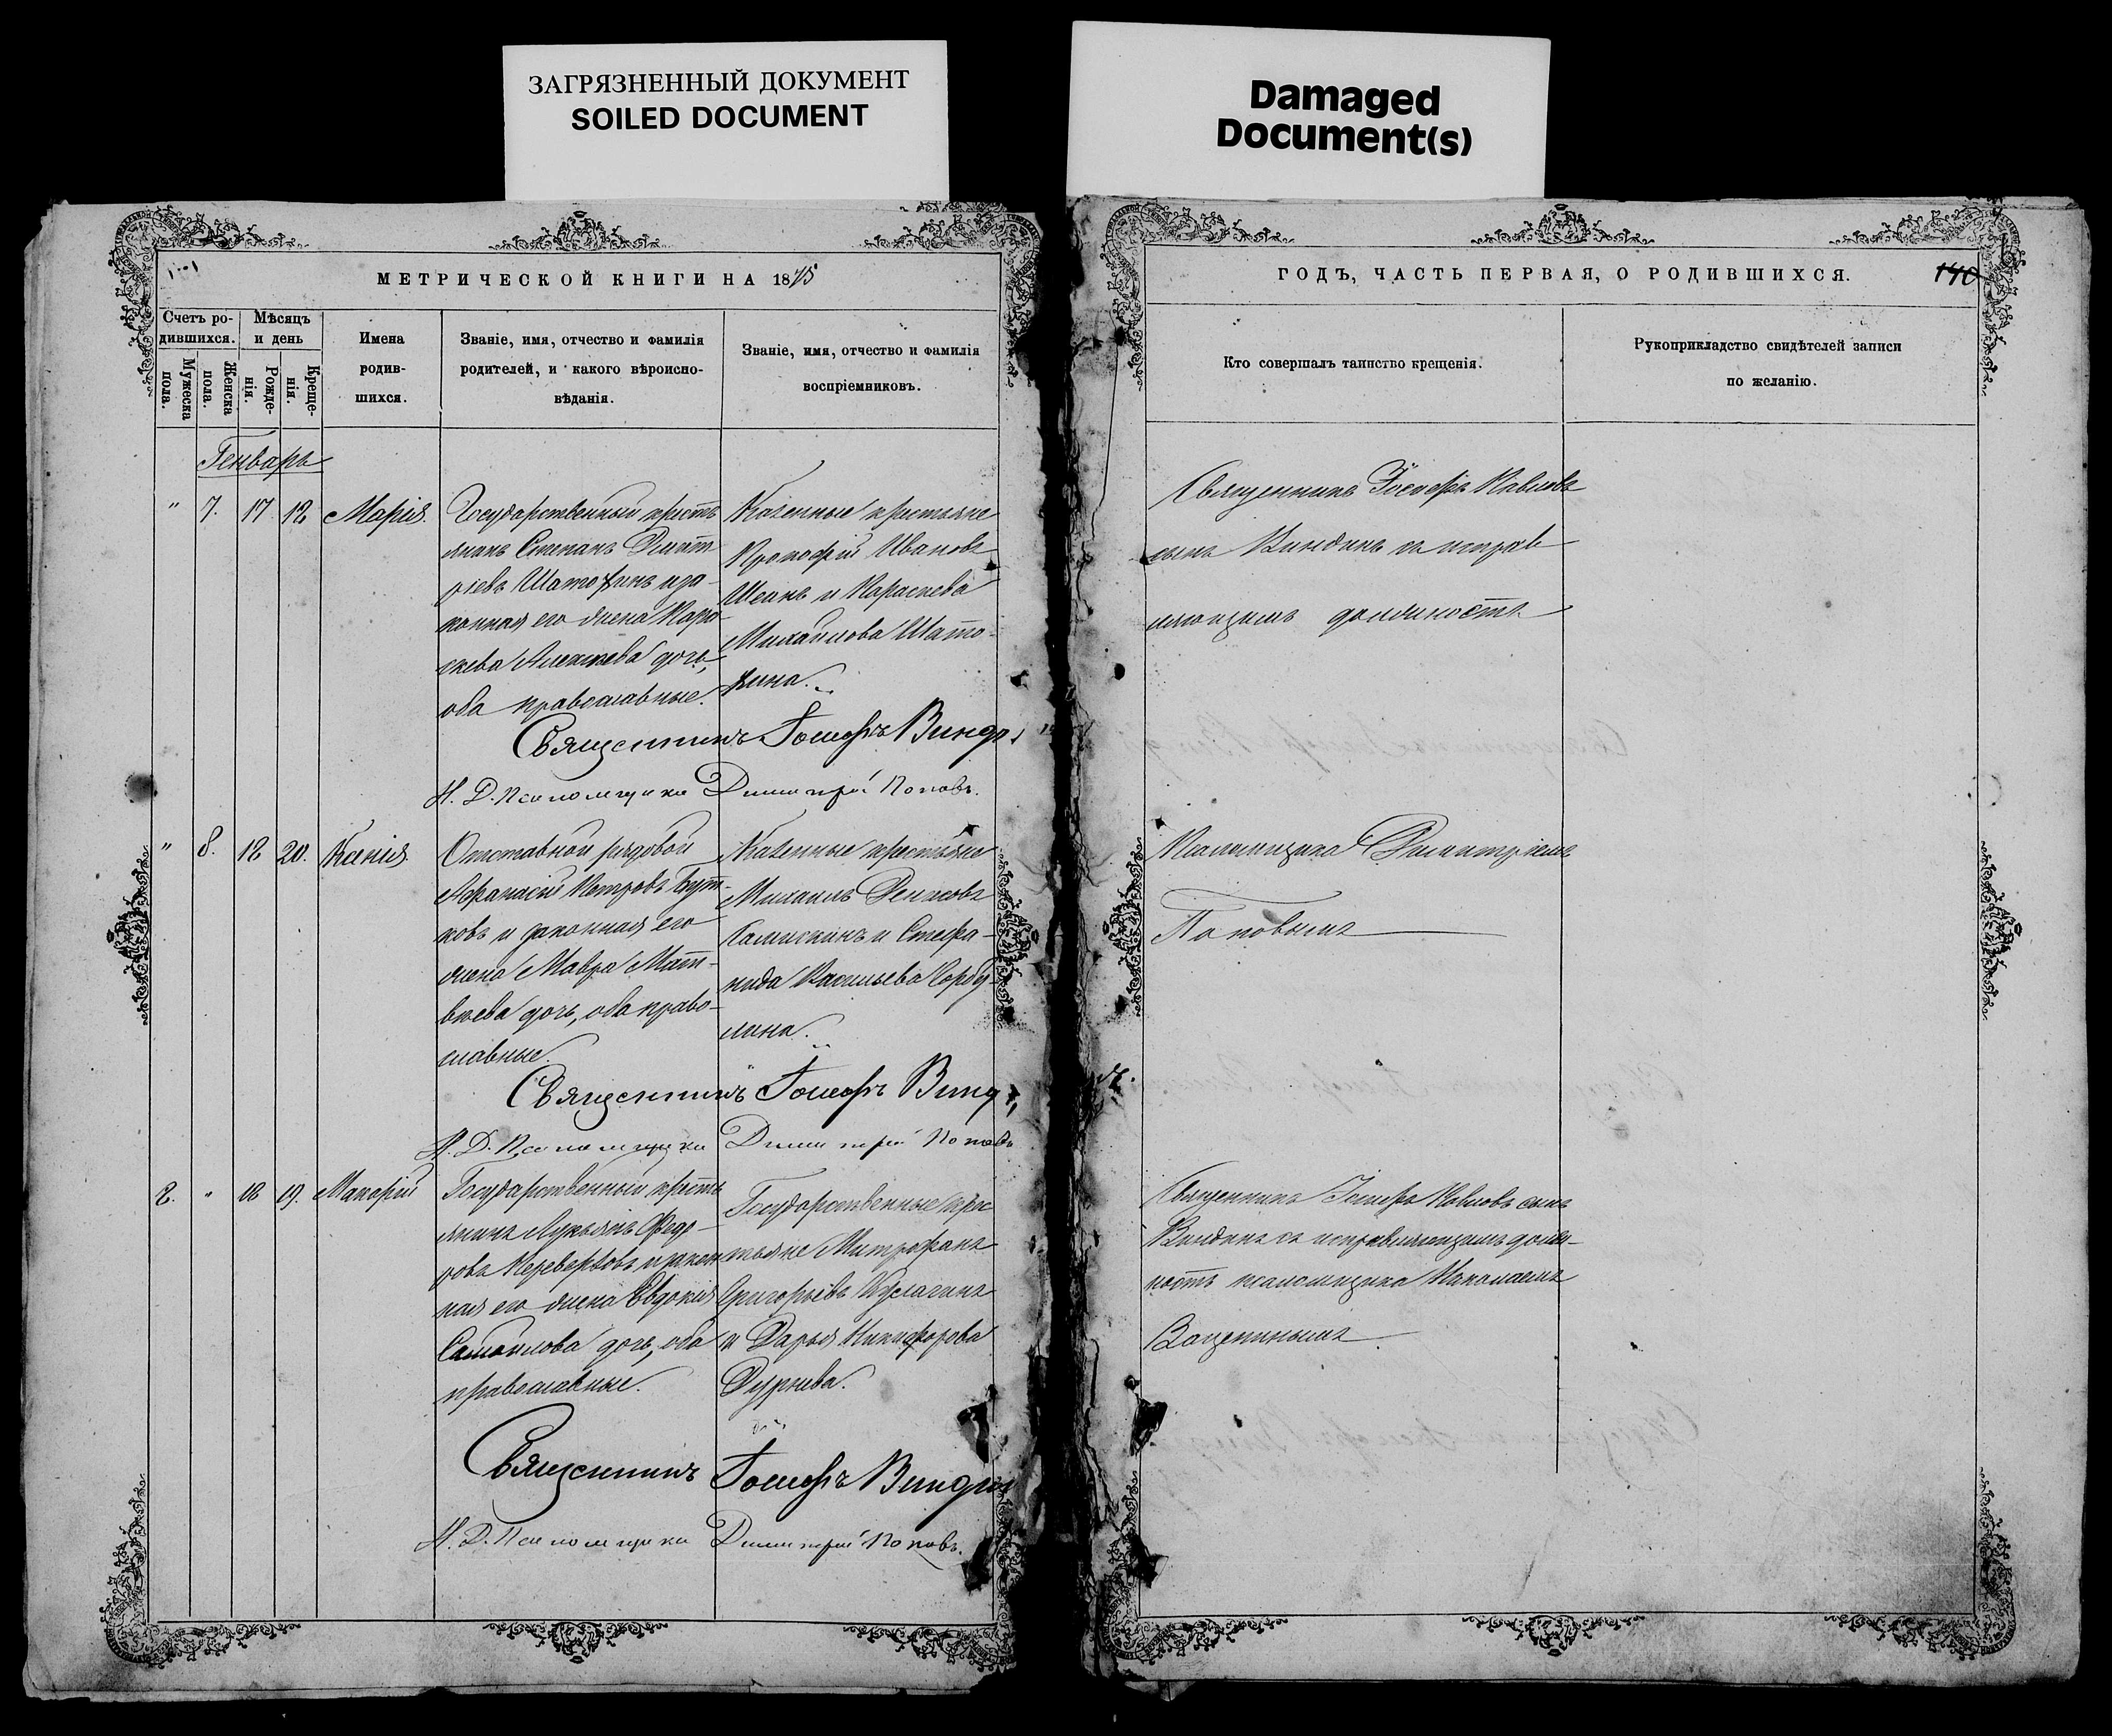 ЗАГРЯЗНЕННЫЙ ДОКУМЕНТ
SOILED DOCUMENT
Damaged
Document(s)
МЕТРИЧЕСКОЙ КНИГИ НА 1875
Счетъ ро-
дившихся.
Мужеска
пола.
Женска
пола.
Мѣсяцъ
и день
Рожде-
нія.
Креще-
нія.
Имена
родив-
шихся.
Званіе, имя, отчество и фамилія
родителей, и какого вѣроиспо-
вѣданія.
Званіе, имя, отчество и фамилія
воспріемниковъ.
Генварь
" 7. 17 18 Марія.
Государственный кресть
янинъ Степанъ Димит
ріевъ
конная его жена Пара
скева Алексѣева дочь,
оба православные.
Казенные крестьяне
Прокофій Ивановъ
Шеинъ и Параскева
Михайлова
Священникъ Іосифъ
И. Д. Псаломщика Димитрій Поповъ.
" 8. 18 20. Ксенія.
Отставной рядовой
Афанасій Петровъ
ковъ и законная его
жена Мавра Мат-
вѣева дочь, оба право-
славные.
Казенные крестьяне
Михаилъ Денисовъ
и Стефа-
нида Васильева
Священникъ Іосифъ
И. Д. Псаломщика Димитрій Поповъ
2. " 18 19. Макарій
Государственный кресть
янинъ Лукьянъ Федо-
ровъ и закон
ная его жена Евдокия
Самойлова дочь, оба
православные.
Государственные крес
тьяне Митрофанъ
Григорьевъ
и Дарья Никифорова
Священникъ Іосифъ
И. Д. Псаломщика Димитрій Поповъ.
ГОДЪ, ЧАСТЬ ПЕРВАЯ, О РОДИВШИХСЯ.
140
Кто совершалъ таинство крещенія.
Рукоприкладство свидѣтелей записи
по желанію.
Священникъ Іосифъ Павловъ
сынъ Виндинъ съ исправ
ляющимъ должность
Псаломщика Димитріемъ
Поповымъ
Священникъ Іосифъ Павловъ сынъ
Виндинъ съ исправляющимъ долж-
ность псаломщика Николаемъ